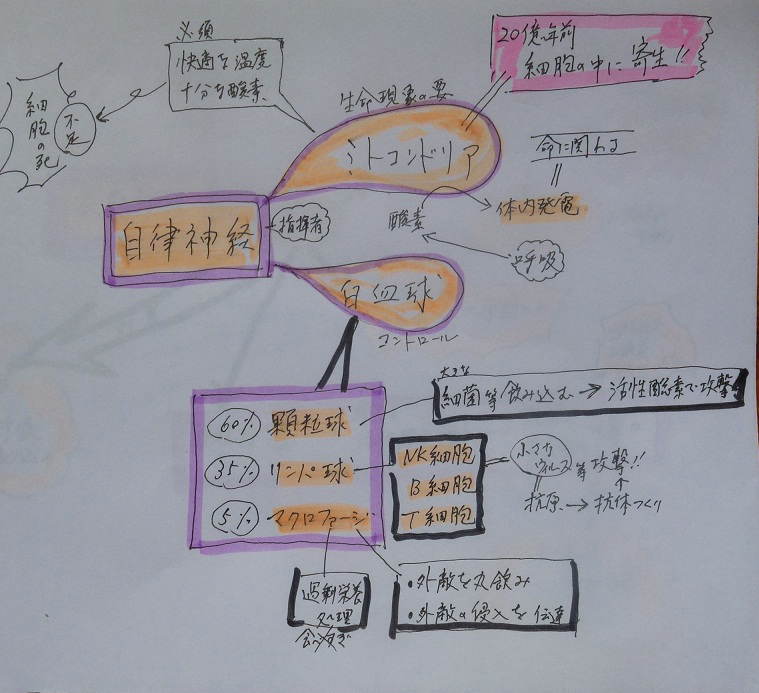 20億年前
細胞の中に寄生!!
必須
快適な温度
十分な酸素
不足
細胞の死
生命現象の要
ミトコンドリア
命に関わる
体内発電
酸素
呼吸
自律神経
指揮者
白血球
コントロール
60% 顆粒球
35% リンパ球
5% マクロファージ
大きな
細菌等飲み込む→活性酸素で攻撃
NK細胞
B細胞
T細胞
小さな
ウィルス等攻撃!!
抗原→抗体つくり
過剰栄養
処理
食べすぎ
・外敵を丸飲み
・外敵の侵入を伝達